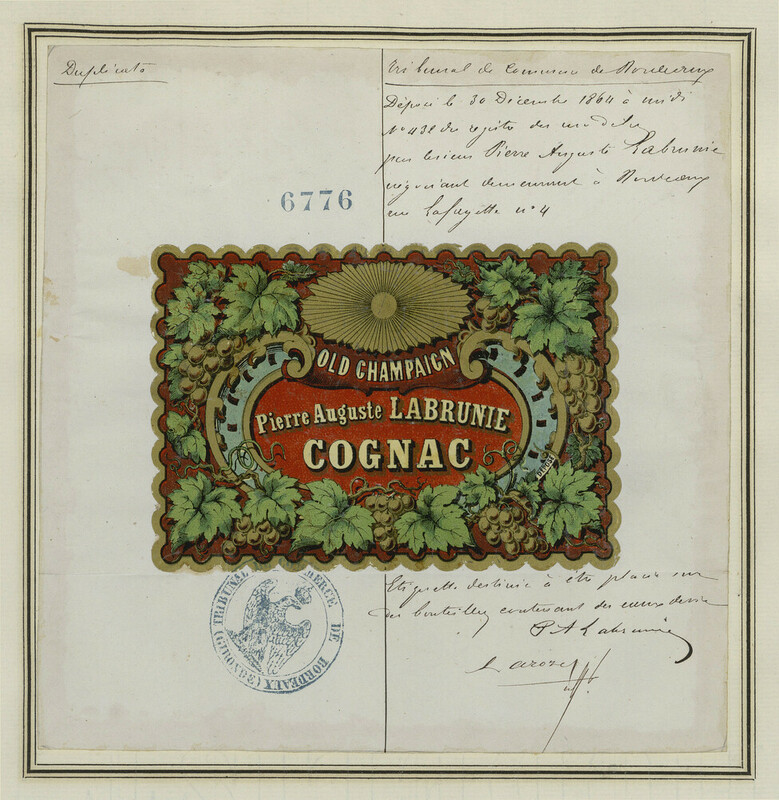 Duplicata
Tribunal de Commerce de Bordeaux
Déposé le 30 Décembre 1864 à midi
N° 432 du registre des modèles
par le sieur Pierre Auguste Labrunie
négociant demeurant à Bordeaux
rue Lafayette n° 4
6776
OLD CHAMPAIGN
Pierre Auguste LABRUNIE
COGNAC
DÉPOSÉ
Etiquette destinée à être placée sur
des bouteilles contenant des eaux de vie
P A Labrunie
Laroze
TRIBUNAL DE COMMERCE DE BORDEAUX (GIRONDE)